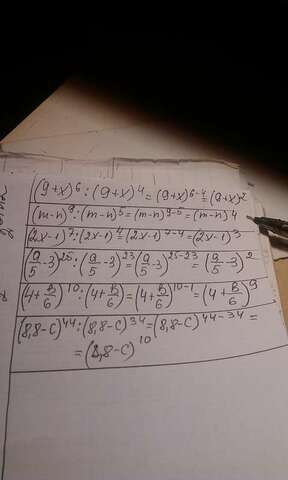 (9+x)^6 : (9+x)^4 = (9+x)^6-4 = (9+x)^2
(m-n)^9 : (m-n)^5 = (m-n)^9-5 = (m-n)^4
(2x-1)^7 : (2x-1)^4 = (2x-1)^7-4 = (2x-1)^3
(a/5 - 3)^25 : (a/5 - 3)^23 = (a/5 - 3)^25-23 = (a/5 - 3)^2
(4 + B/6)^10 : (4 + B/6) = (4 + B/6)^10-1 = (4 + B/6)^9
(8,8-c)^44 : (8,8-c)^34 = (8,8-c)^44-34 =
= (8,8-c)^10